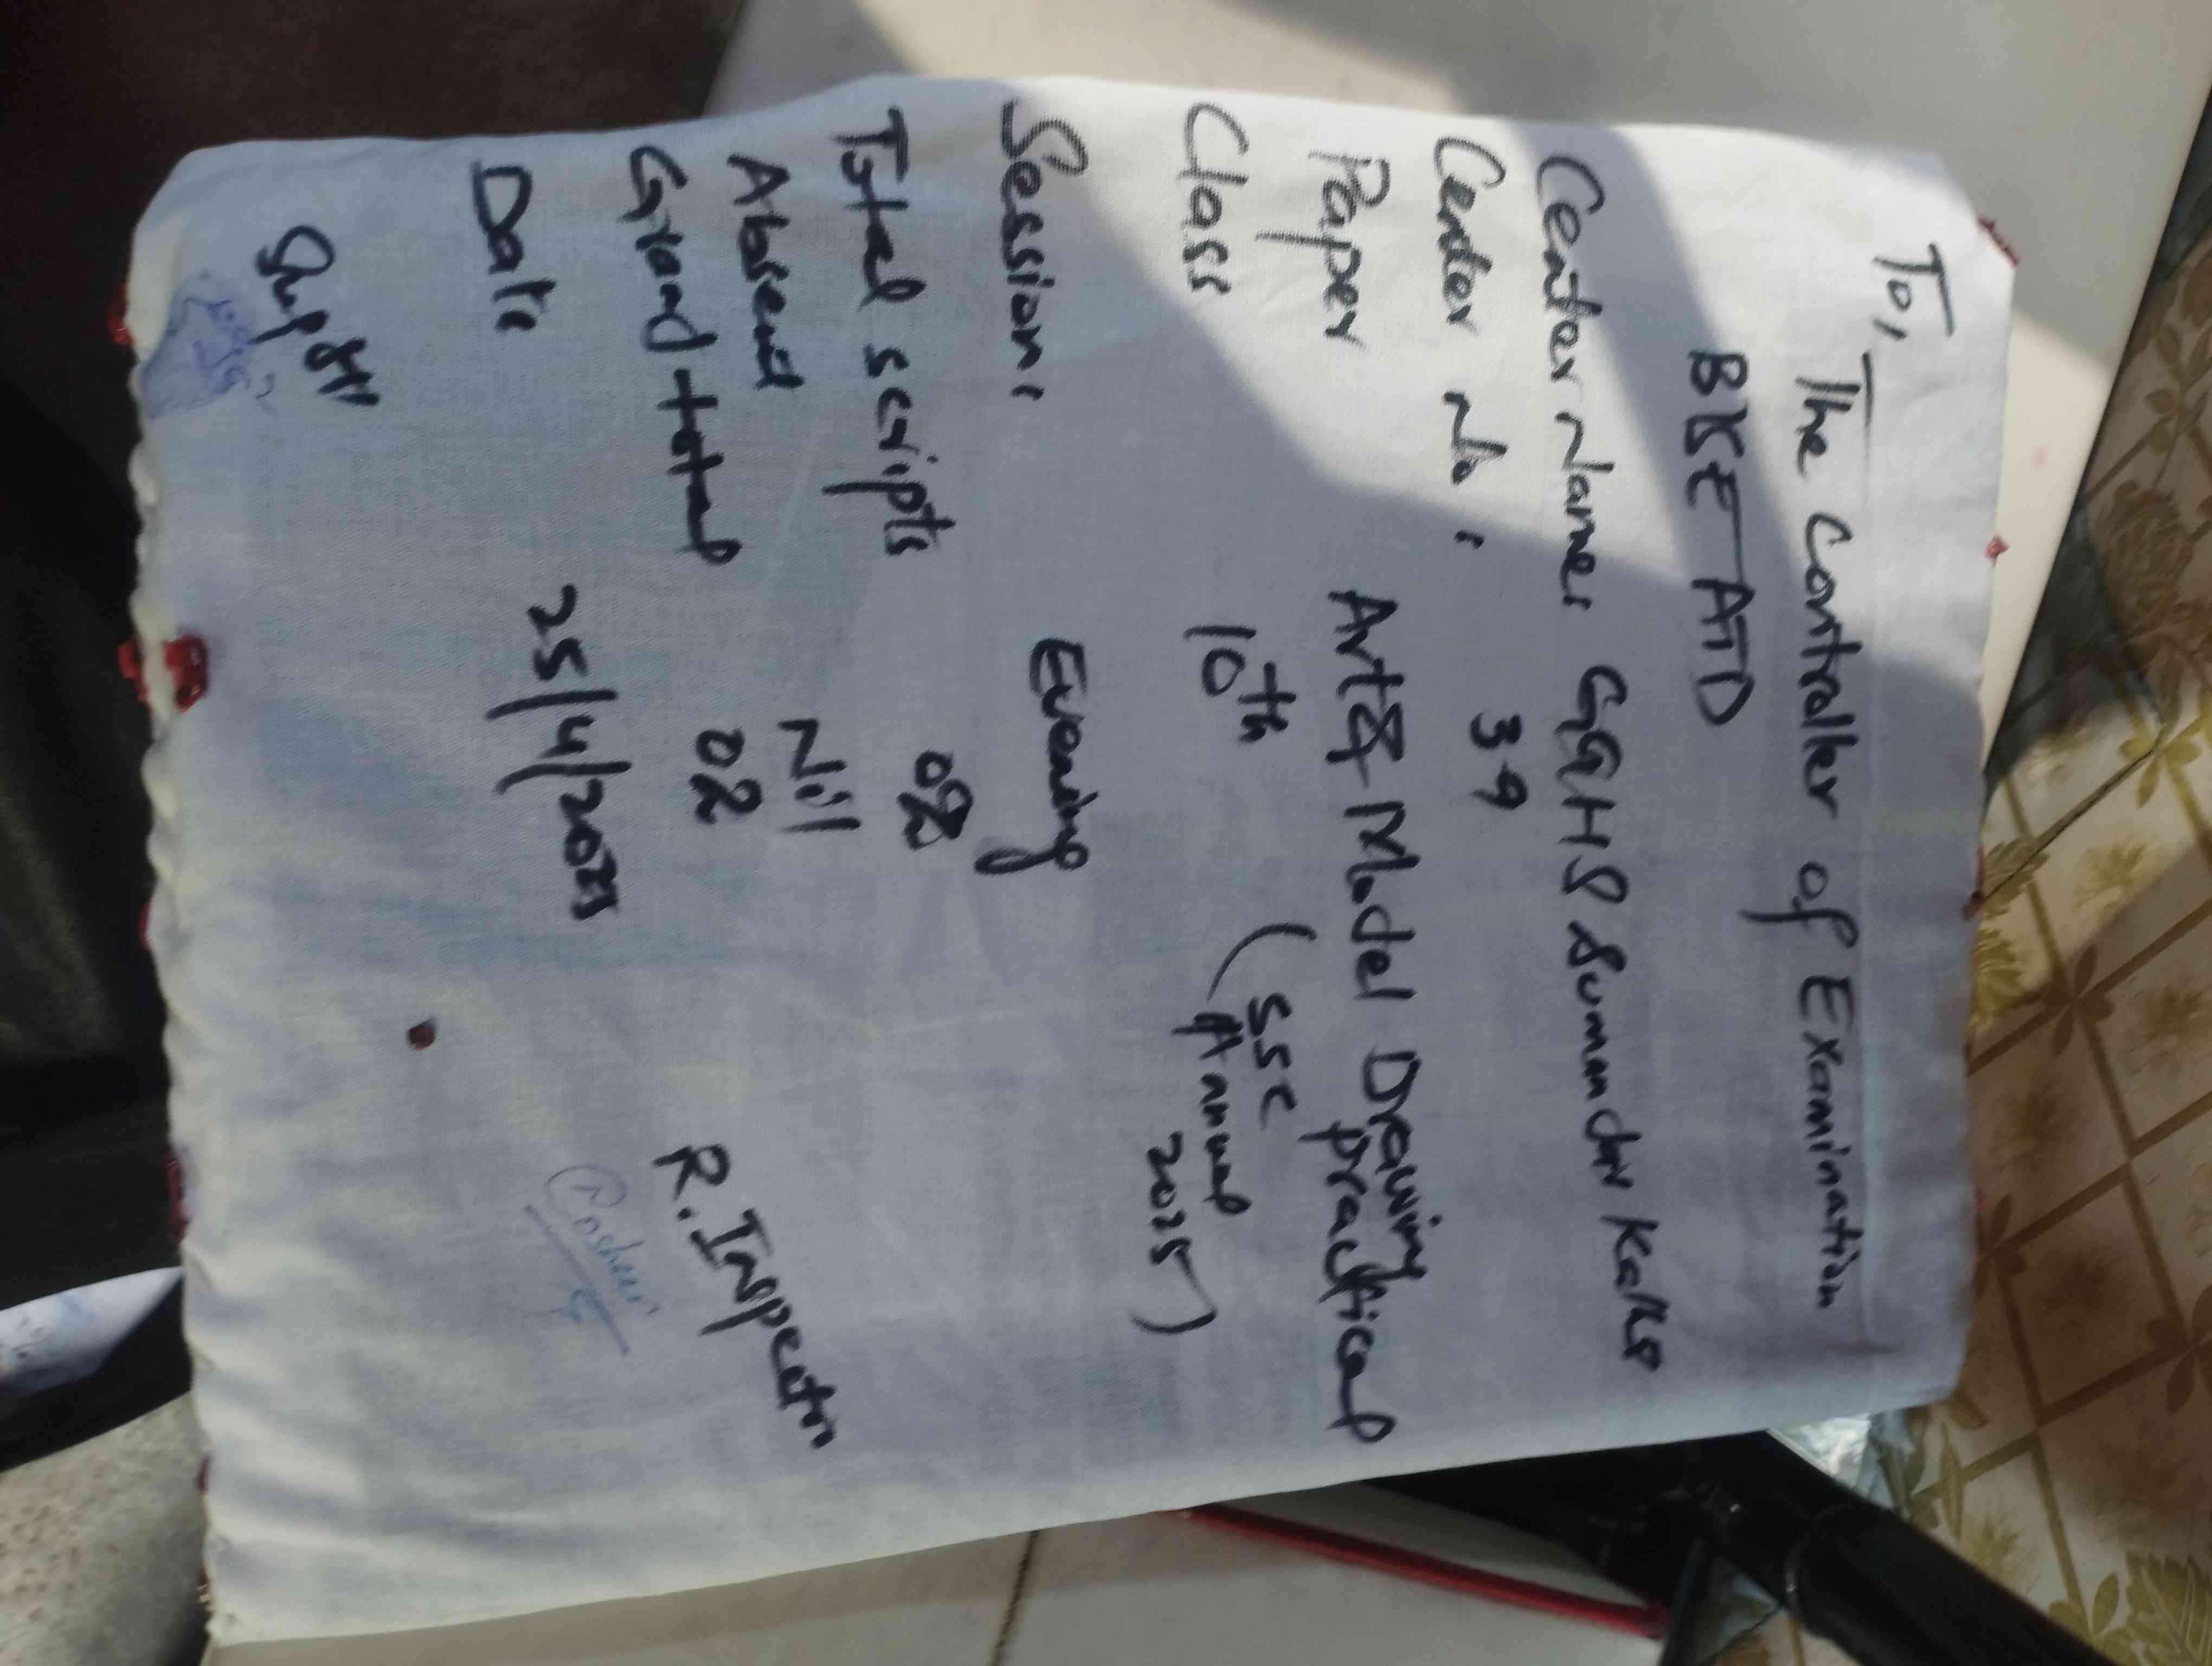 To,
The Controller of Examination
BISE ATD
Center Name: GGHS Sumundar Katha
Center No: 39
Paper Art & Model Drawing practical
Class 10th (SSC Annual 2025)
Session: Evening
Total scripts 02
Absent Nil
Grand total 02
Date 25/4/2025
R. Inspector
Supdtt